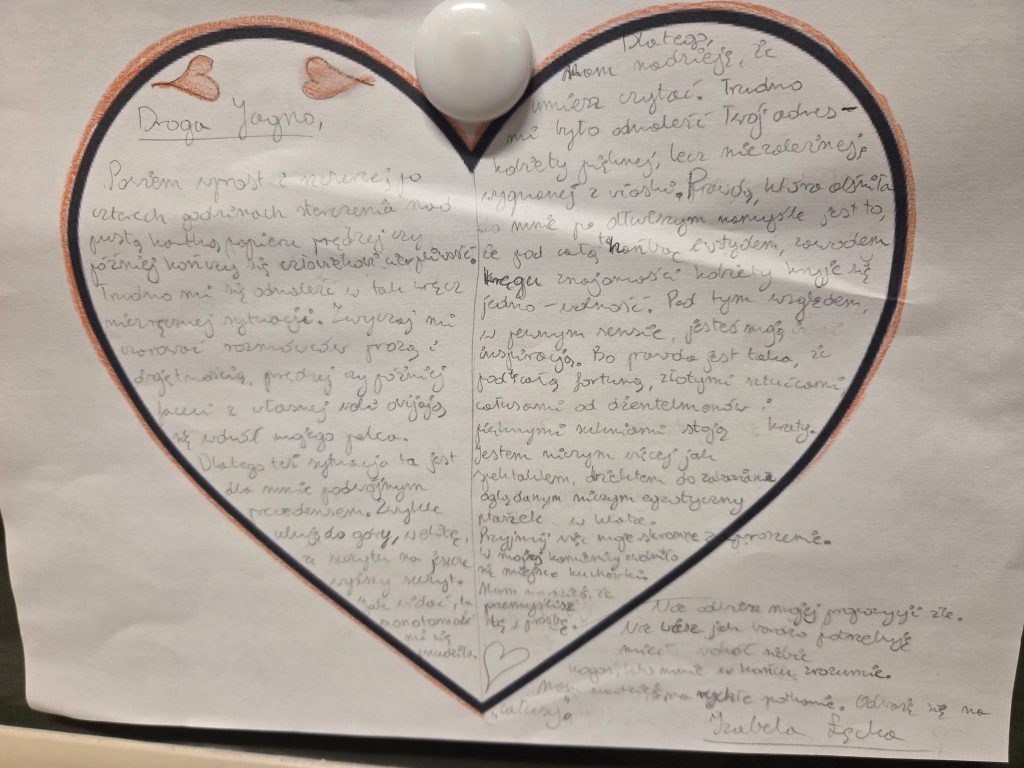 Droga Jagno,
Powiem wprost i szczerze, po
czterech godzinach sterczenia nad
pustą kartką papieru prędzej czy
później kończy się człowiekowi cierpliwość.
Trudno mi się odnaleźć w tak wręcz
niezręcznej sytuacji. Zwyczaj mi
czarować rozmówców prozą i
obojętnością, prędzej czy później
faceci z własnej woli owijają
się wokół mojego palca.
Dlatego też sytuacja ta jest
dla mnie podwójnym
precedensem. Zwykle
celuję do góry, w elitę,
ze szczytu na jeszcze
wyższy szczyt.
Jak widać, ta
monotonia
mi się
znudziła.
Dlatego,
Mam nadzieję, że
umiesz czytać. Trudno
mi było odnaleźć Twój adres –
kobiety pięknej, lecz niezależnej,
wygnanej z wioski. Prawda, która olśniła
mnie po dłuższym namyśle jest to,
że pod całą tą hańbą i wstydem,
kręgu znajomości kobiety kryje się
jedno – wolność. Pod tym względem,
w pewnym sensie, jesteś moją
inspiracją. Bo prawda jest taka, że
pod całą fortuną, złotymi sztućcami
całusami od dżentelmenów i
pięknymi sukniami stoją kraty.
Jestem niczym więcej jak
spektaklem, obiektem do zabawiania
oglądanym niczym egzotyczny
ptaszek w klatce.
Przyjmij więc moje skromne zaproszenie.
W mojej kamienicy zwolniło
się miejsce kucharki.
Mam nadzieję, że
przemyślisz
tę prośbę.
Nie odbierz mojej propozycji źle.
Nie wiesz jak bardzo potrzebuję
mieć wokół siebie
kogoś, kto mnie w końcu zrozumie.
Mam nadzieję na rychłe spotkanie. Odezwij się na
"całusy".
Izabela Łęcka